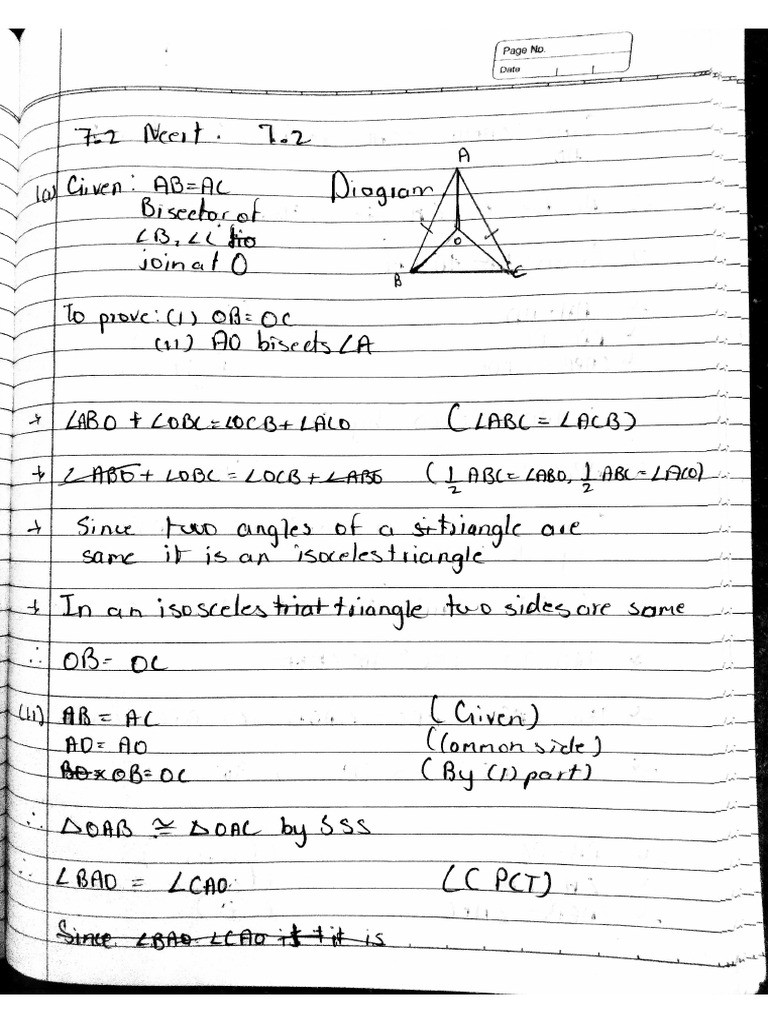 Page No.
Date
7.2 Ncert. 7.2
(a) Given: AB=AC Diagram
Bisector of
∠B, ∠C
join at O
A
O
B
C
To prove: (i) OB=OC
(ii) AO bisects ∠A
→ ∠ABO + ∠OBC = ∠OCB + ∠ACO (∠ABC = ∠ACB)
→ ∠ABO + ∠OBC = ∠OCB + ∠ABO (1/2 ABC = ∠ABO, 1/2 ABC = ∠ACO)
→ Since two angles of a triangle are
same it is an isoceles triangle
→ In an isosceles triat triangle two sides are same
∴ OB = OC
(ii) AB = AC (Given)
AO = AO (Common side)
BO x OB = OC (By (i) part)
∴ △OAB ≅ △OAC by SSS
∴ ∠BAO = ∠CAO (CPCT)
Since ∠BAO ∠CAO it is